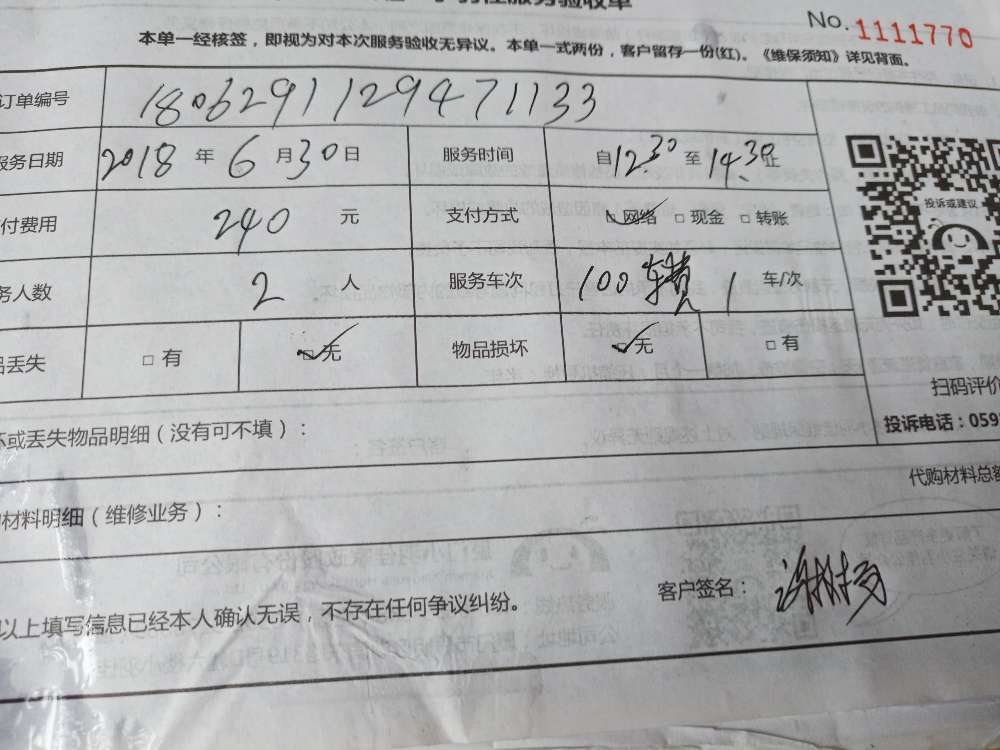 服务验收单
No. 1111770
本单一经核签，即视为对本次服务验收无异议。本单一式两份，客户留存一份(红)。《维保须知》详见背面。
订单编号 1806291129471133
服务日期 2018 年 6 月 30 日 服务时间 自 12 30 至 14.30 止
付费用 240 元 支付方式 ☑ 网络 □ 现金 □ 转账
务人数 2 人 服务车次 100车费 1 车/次
品丢失 □ 有 ☑ 无 物品损坏 ☑ 无 □ 有
投诉或建议
扫码评价
投诉电话：059
坏或丢失物品明细（没有可不填）：
代购材料总额
材料明细（维修业务）：
以上填写信息已经本人确认无误，不存在任何争议纠纷。
客户签名：